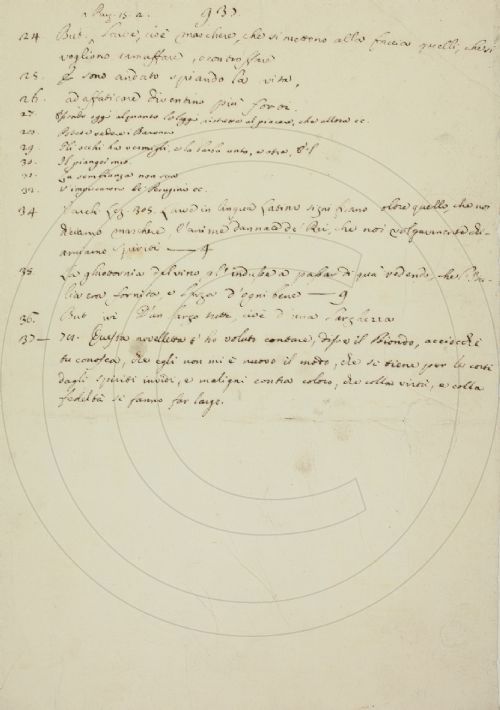 Purg. 15. a. 937.
24. But. Larve, cioè maschere, che si metteno alla faccia quelli, che si
vogliono camuffare, o contraffare
25. E sono andato spiando la vita,
26. ad affaticare diventino più feroci.
27. oggi alquanto la legge, al piacere, che allora ec.
28. vedere i
29. Gli occhi ha vermigli, e la barba unta, e atra, E 'l
30. Il piangei mo.
31. In sembianza non
32. impiccarono ec.
34 Varch. Lez. 305. Larve in lingua Latina significano oltre quelle, che noi
diciamo maschere, l'anime dannate de' Rei, che noi volgarmente
spiriti — 4
35. La ghiottornia del vino gl' induce a passar di quà vedendo, che l'
lia era fornita, e d'ogni bene — 9
36. But. D'un largo tutte, cioè d'una larghezza
37 — 711. Questa novelletta t' ho voluto contare, disse il Biondo, acciocchè
tu conosca, che egli non mi è nuovo il modo, che si tiene per le corti
dagli spiriti invidi, e maligni contra coloro, che colla virtù, e colla
fedeltà si fanno far large.